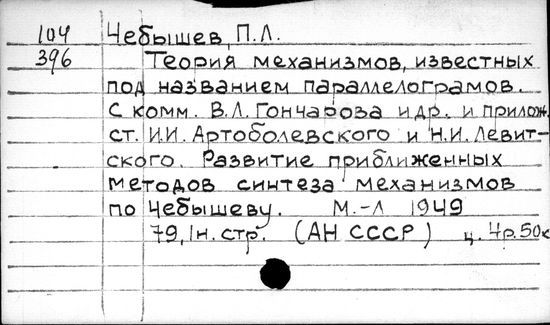 104 Чебышев, П.Л.
396 Теория механизмов, известных
под названием параллелограмов.
С комм. В.Л. Гончарова и др. и прилож.
ст. И.И. Артоболевского и Н.И. Левит-
ского. Развитие приближенных
методов синтеза механизмов
по Чебышеву. М.-Л 1949
79, 1н. стр. (АН СССР) ц. 4р.50к